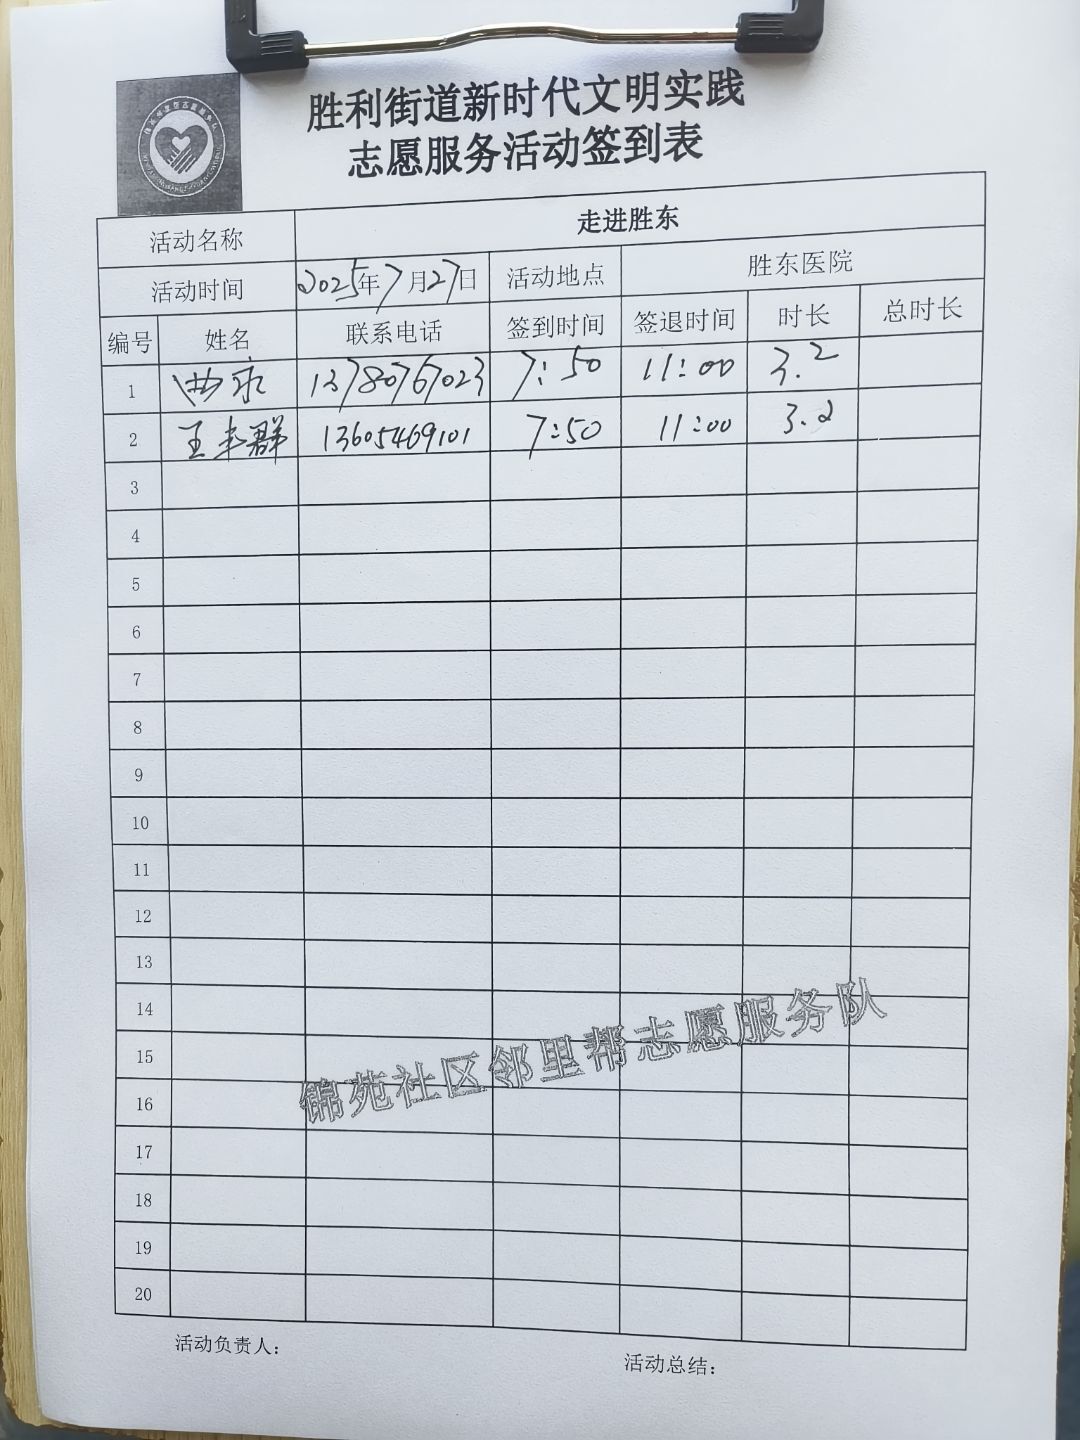 胜利街道新时代文明实践
志愿服务活动签到表
活动名称 走进胜东
活动时间 2025年7月27日 活动地点 胜东医院
编号 姓名 联系电话 签到时间 签退时间 时长 总时长
1 曲永 13780767023 7:50 11:00 3.2
2 王丰群 13605469101 7:50 11:00 3.2
3
4
5
6
7
8
9
10
11
12
13
14
15
16
17
18
19
20
锦苑社区邻里帮志愿服务队
活动负责人：
活动总结：